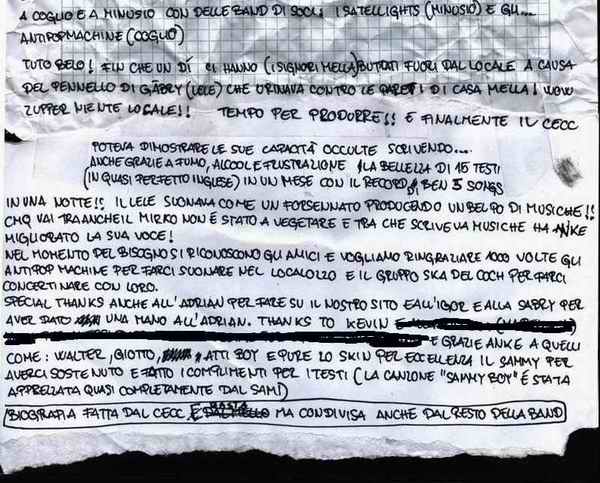 A COGLIO E A MINUSIO CON DELLE BAND DI SOCI: I SATELLIGHTS (MINUSIO) E GLI...
ANTIPOPMACHINE (COGLIO)
TUTO BELO! FIN CHE UN DÍ CI HANNO (I SIGNORI MELLA) BUTTATI FUORI DAL LOCALE A CAUSA
DEL PENNELLO DI GÄBRY (LELE) CHE URINAVA CONTRO LE PARETI DI CASA MELLA! WOW
ZUPPER NIENTE LOCALE!! TEMPO PER PRODURRE!! E FINALMENTE IL CECC
POTEVA DIMOSTRARE LE SUE CAPACITÀ OCCULTE SCRIVENDO...
ANCHE GRAZIE A FUMO, ALCOOL E FRUSTRAZIONE, LA BELLEZZA DI 15 TESTI
(IN QUASI PERFETTO INGLESE) IN UN MESE CON IL RECORD DI BEN 3 SONGS
IN UNA NOTTE!! IL LELE SUONAVA COME UN FORSENNATO PRODUCENDO UN BEL PO DI MUSICHE!!
CMQ VAI TRA ANCHE IL MIRKO NON È STATO A VEGETARE E TRA CHE SCRIVEVA MUSICHE HA ANKE
MIGLIORATO LA SUA VOCE!
NEL MOMENTO DEL BISOGNO SI RICONOSCONO GLI AMICI E VOGLIAMO RINGRAZIARE 1000 VOLTE GLI
ANTIPOP MACHINE PER FARCI SUONARE NEL LOCALOZZO E IL GRUPPO SKA DEL COCH PER FARCI
CONCERTINARE CON LORO.
SPECIAL THANKS ANCHE ALL'ADRIAN PER FARE SU IL NOSTRO SITO E ALL'IGOR E ALLA SABRY PER
AVER DATO UNA MANO ALL'ADRIAN. THANKS TO KEVIN
E GRAZIE ANKE A QUELLI
COME: WALTER, GIOTTO, , ATTI BOY E PURE LO SKIN PER ECCELLENZA IL SAMMY PER
AVERCI SOSTENUTO E FATTO I COMPLIMENTI PER I TESTI (LA CANZONE "SAMMY BOY" È STATA
APPREZZATA QUASI COMPLETAMENTE DAL SAMI)
BIOGRAFIA FATTA DAL CECC E MA CONDIVISA ANCHE DAL RESTO DELLA BAND